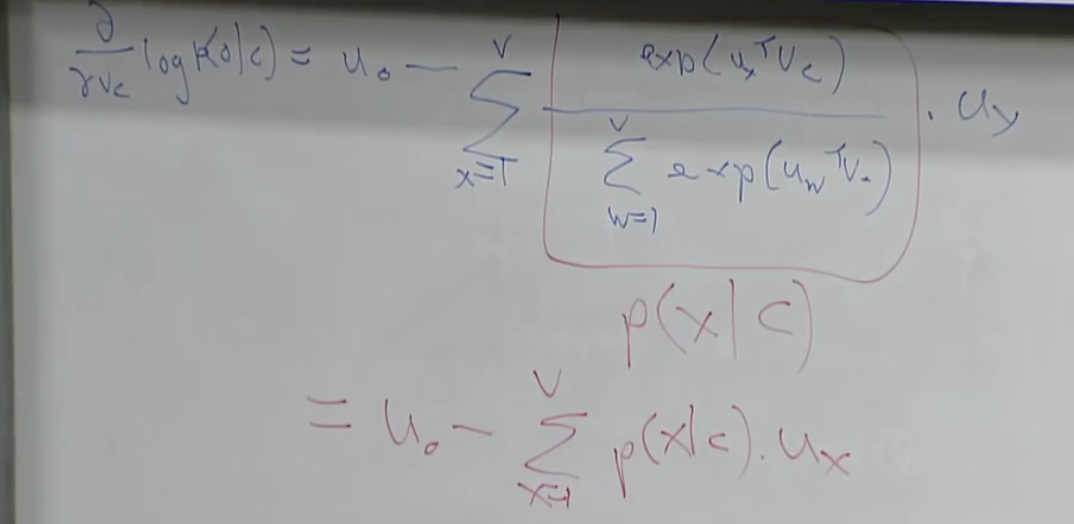 ∂/∂v_c log p(o|c) = u_o − ∑_{x=1}^{V} exp(u_x^T v_c) / ∑_{w=1}^{V} exp(u_w^T v_c) · u_x
p(x|c)
= u_o − ∑_{x=1}^{V} p(x|c) · u_x